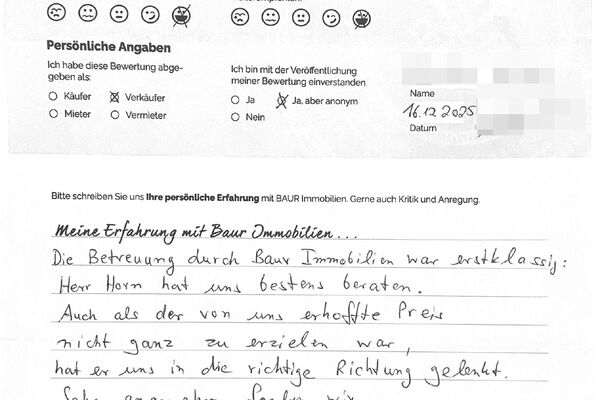 Persönliche Angaben
Ich habe diese Bewertung abge-
geben als:
Käufer Verkäufer
Mieter Vermieter
Ich bin mit der Veröffentlichung
meiner Bewertung einverstanden.
Ja Ja, aber anonym
Nein
Name
16.12.2025
Datum
Bitte schreiben Sie uns Ihre persönliche Erfahrung mit BAUR Immobilien. Gerne auch Kritik und Anregung.
Meine Erfahrung mit Baur Immobilien...
Die Betreuung durch Baur Immobilien war erstklassig:
Herr Horn hat uns bestens beraten.
Auch als der von uns erhoffte Preis
nicht ganz zu erzielen war,
hat er uns in die richtige Richtung gelenkt.